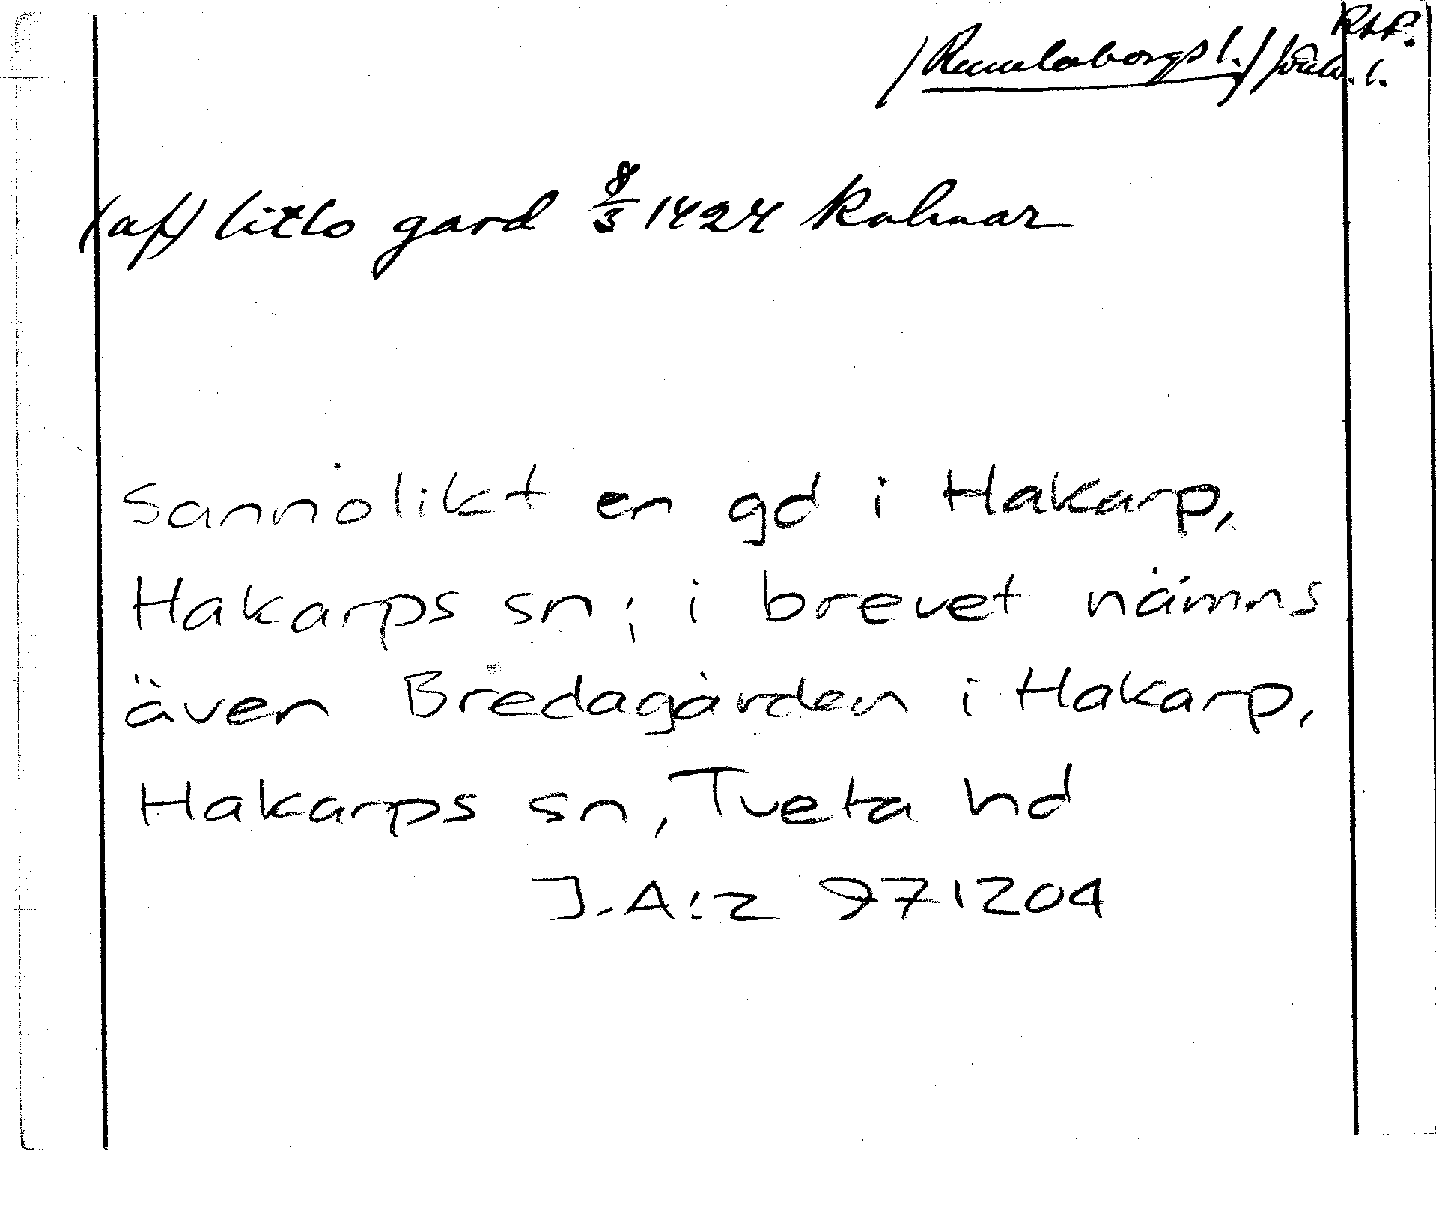 RAP.
/Rumlaborgs l./ Jönk. l.
(af) litlo gard 8/3 1424 Kalmar
Sannolikt en gd i Hakarp,
Hakarps sn; i brevet nämns
även Bredagården i Hakarp,
Hakarps sn, Tveta hd
J.A:z 971204